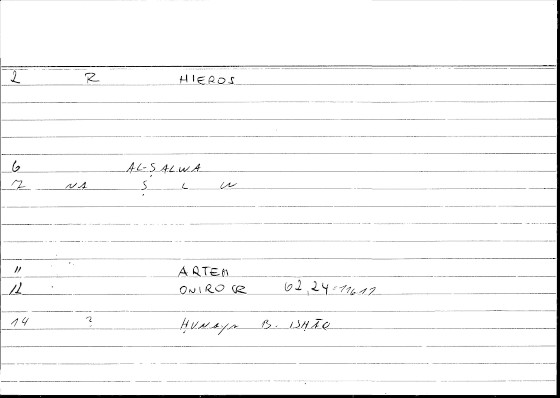 2 R HIEROS
6 AL-ṢALWA
7 NA Ṣ L W
11 ARTEM
12 ONIROCR 62,24
14 ? ḤUNAYN B. ISḤĀQ